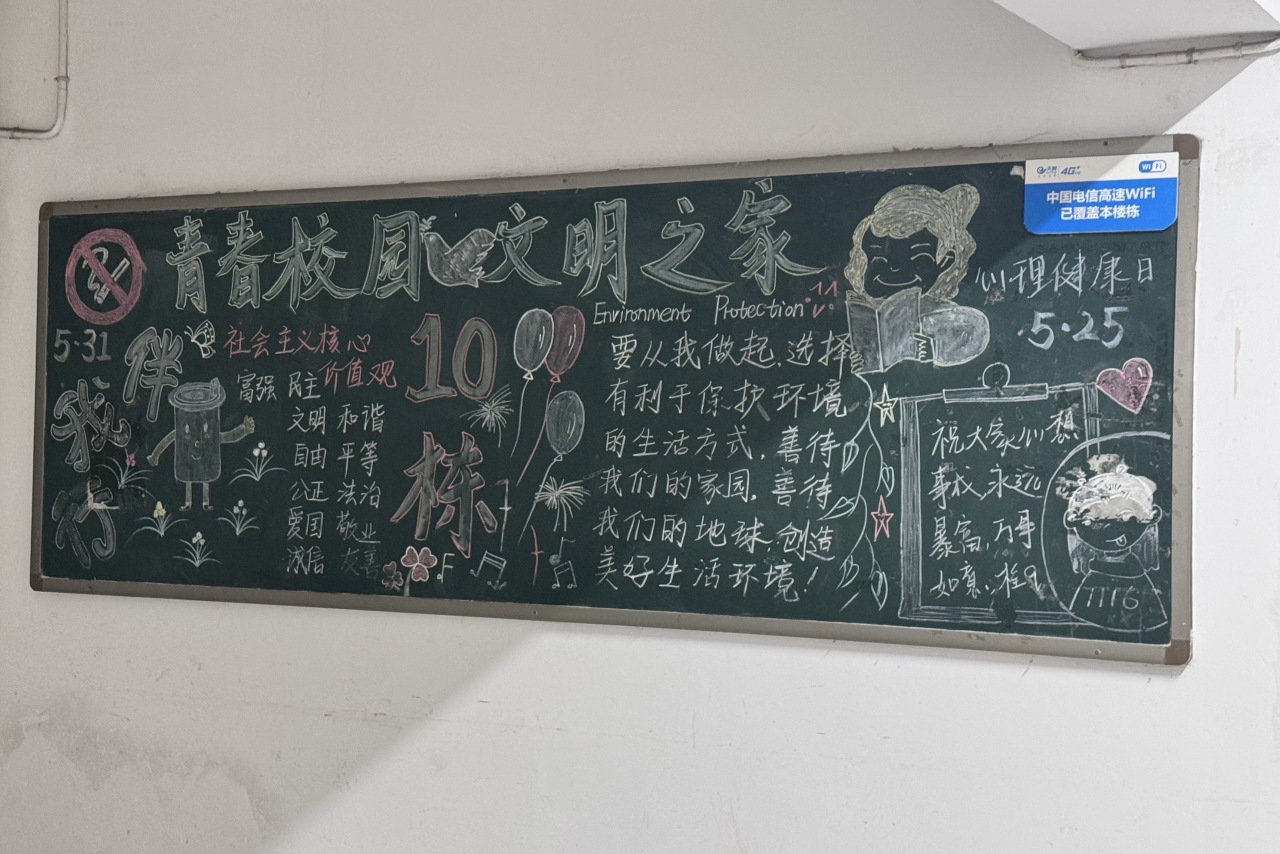 青春校园 文明之家
5·31
伴
我
行
社会主义核心
价值观
富强 民主
文明 和谐
自由 平等
公正 法治
爱国 敬业
诚信 友善
10
栋
Environment Protection
要从我做起,选择
有利于保护环境
的生活方式,善待
我们的家园,善待
我们的地球,创造
美好生活环境!
4G
WiFi
中国电信高速WiFi
已覆盖本楼栋
心理健康日
5·25
祝大家心想
事成,永远
暴富,万事
如意,
1116